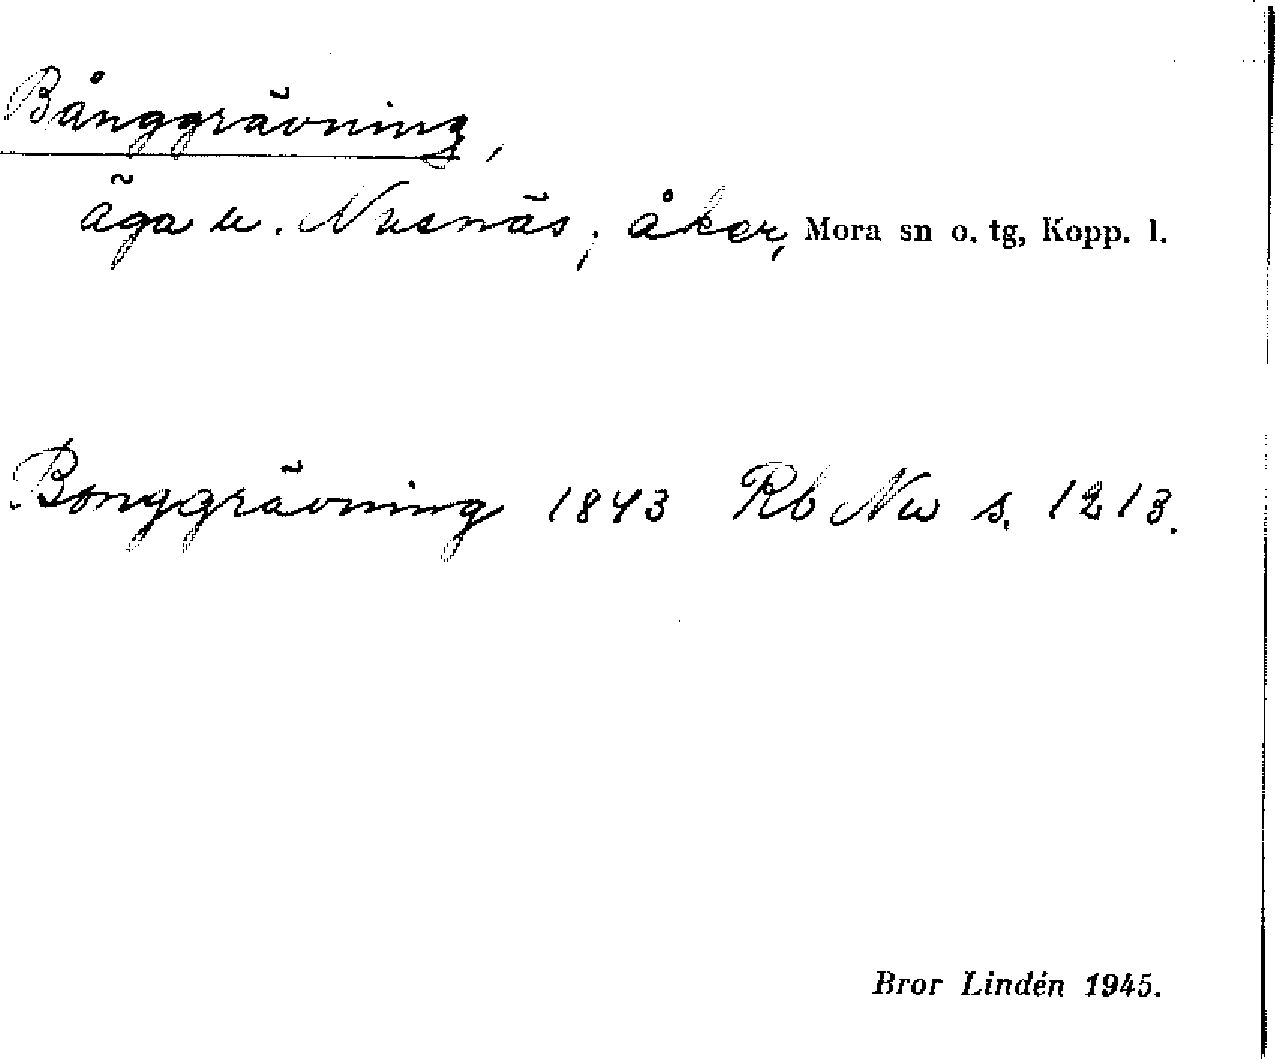 Bånggrävning,
äga u. Nusnäs; åker, Mora sn o. tg, Kopp. l.
Bonggrävning 1843 Rb Nu s. 1213.
Bror Lindén 1945.